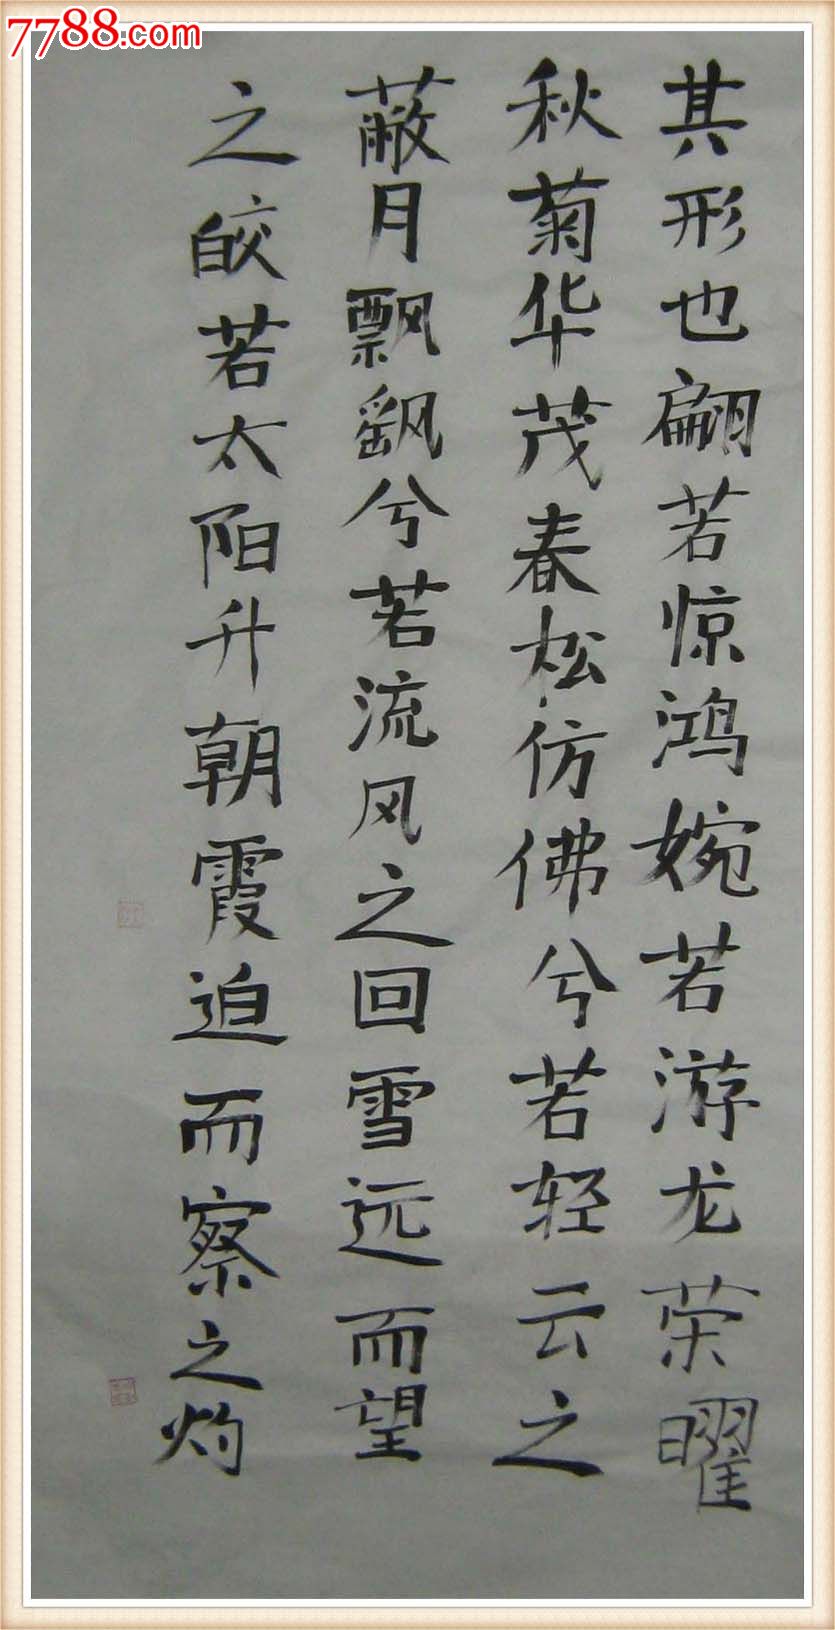 7788.com
其形也翩若惊鸿婉若游龙荣曜
秋菊华茂春松仿佛兮若轻云之
蔽月飘飖兮若流风之回雪远而望
之皎若太阳升朝霞迫而察之灼